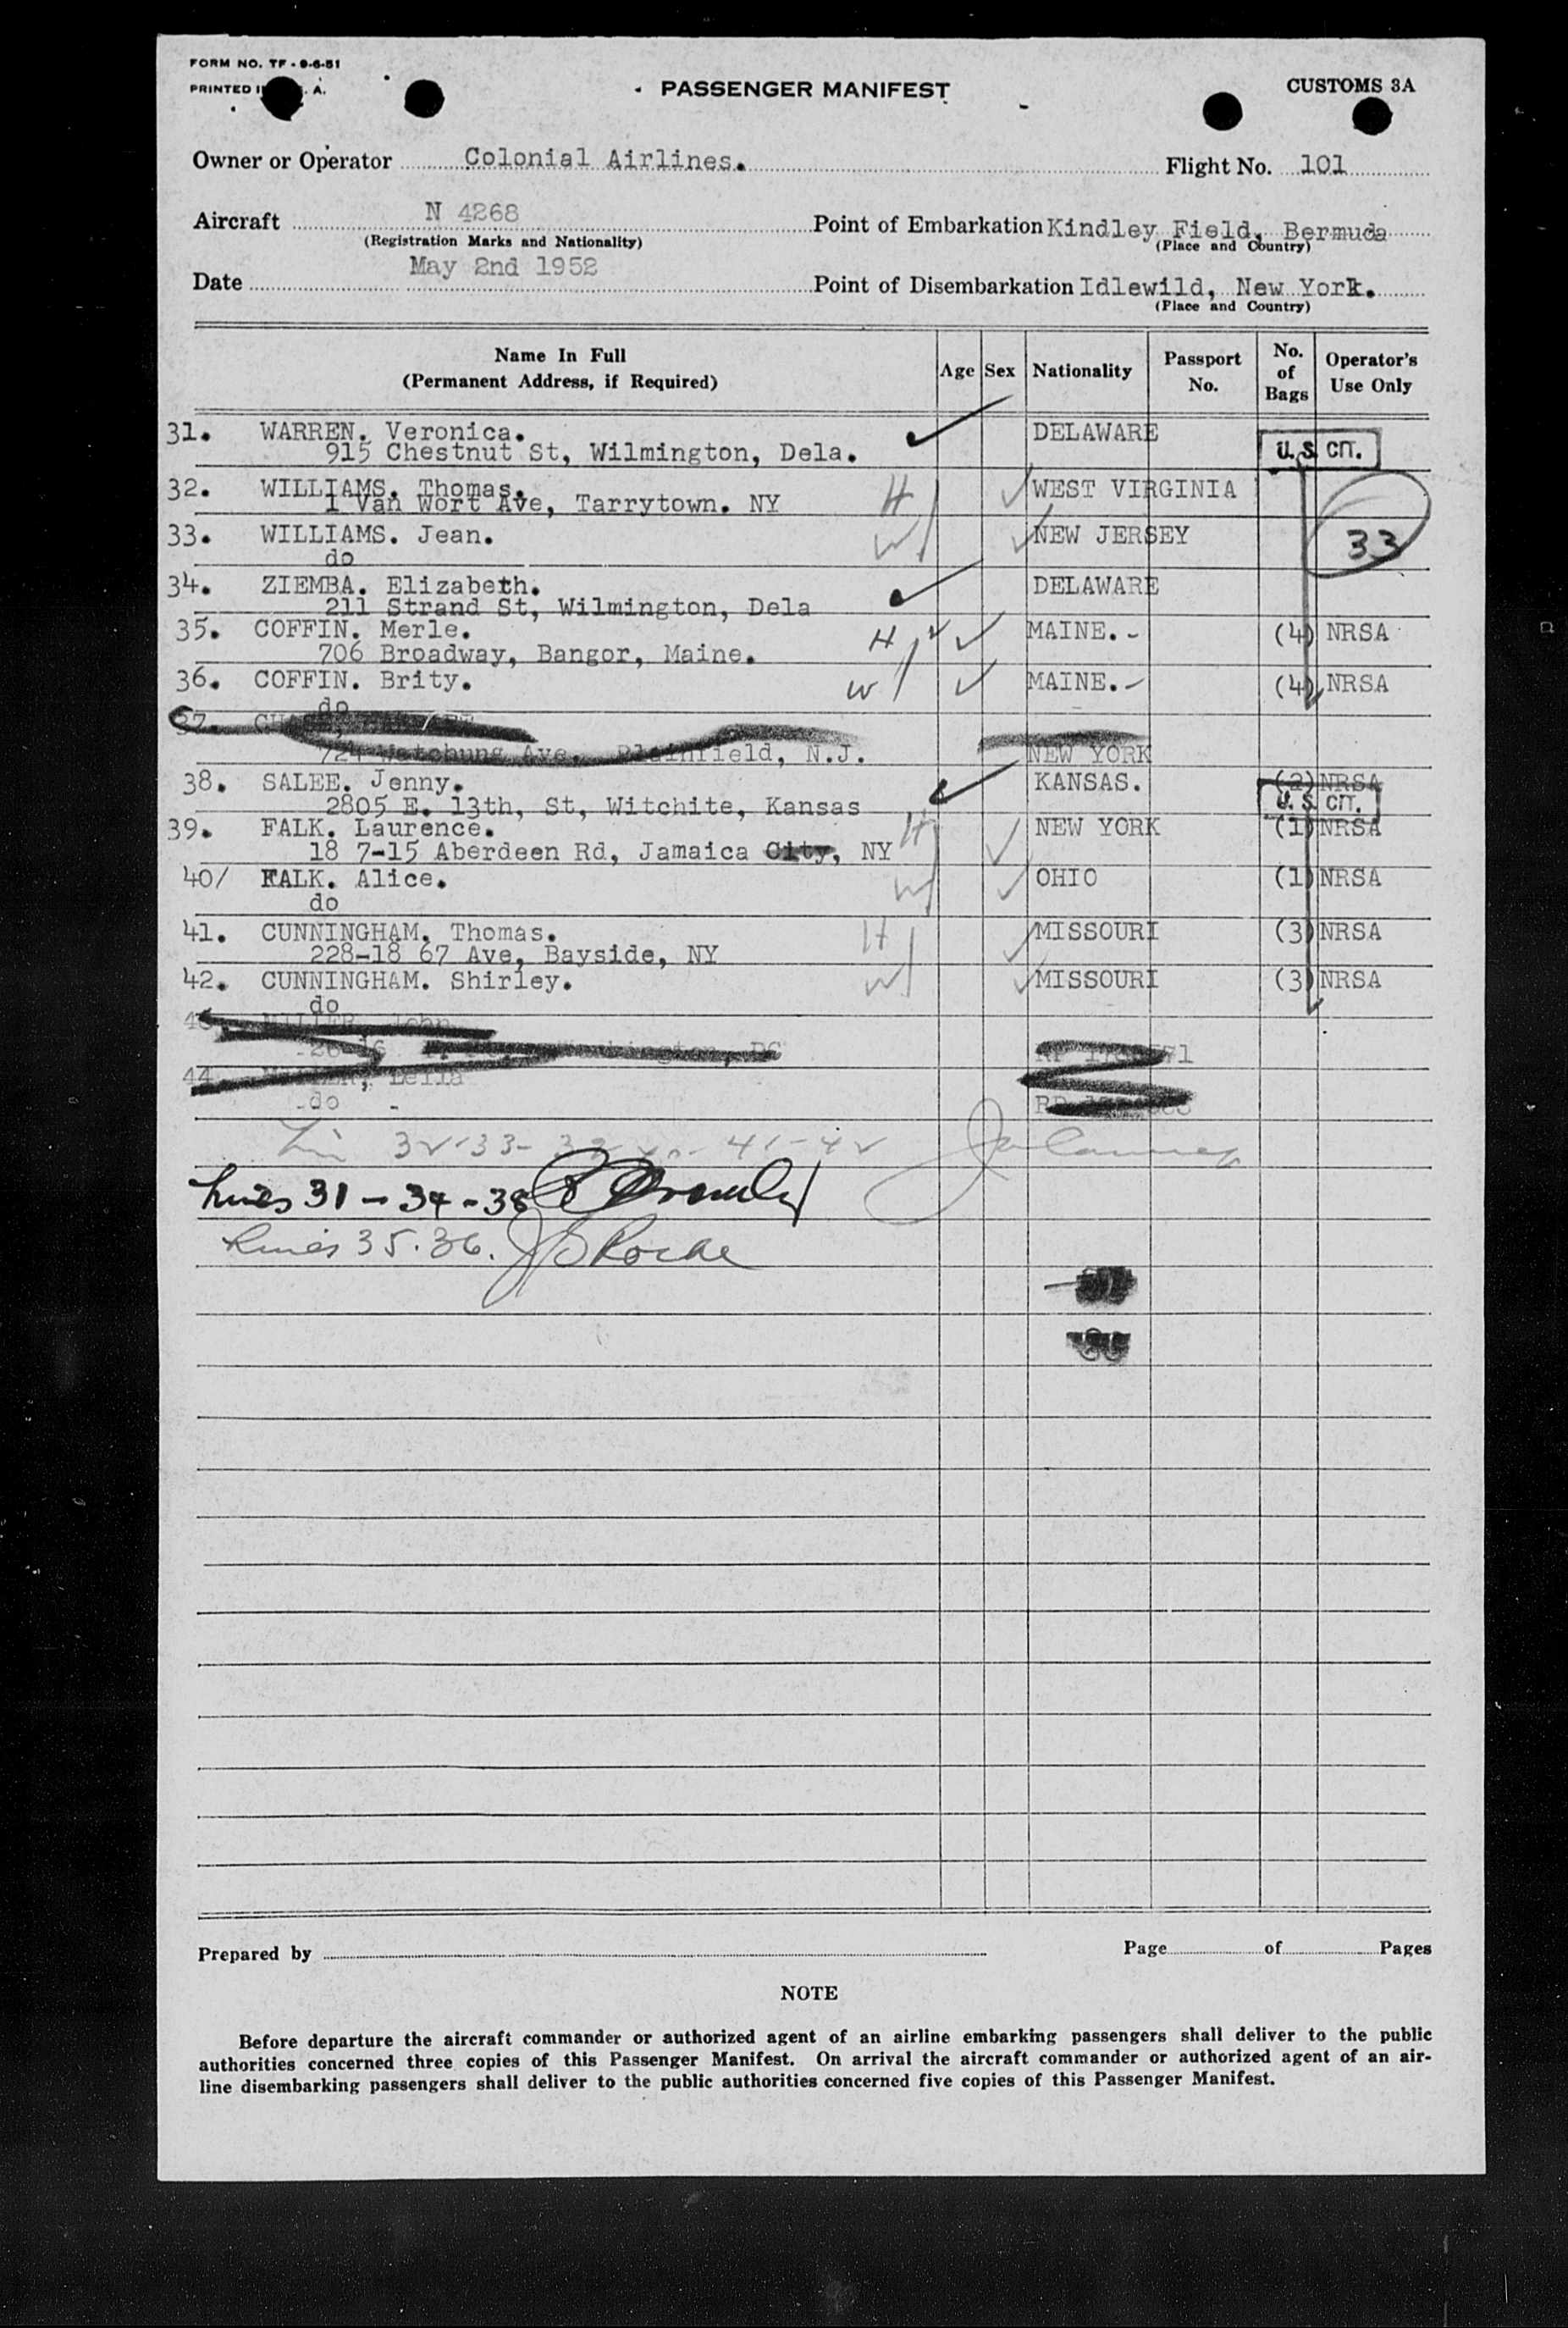 FORM NO. TF - 9-6-51
PRINTED I . A.
PASSENGER MANIFEST
CUSTOMS 3A
Owner or Operator Colonial Airlines. Flight No. 101
Aircraft N 4268 Point of Embarkation Kindley Field, Bermuda
(Registration Marks and Nationality) (Place and Country)
Date May 2nd 1952 Point of Disembarkation Idlewild, New York.
(Place and Country)
Name In Full (Permanent Address, if Required) Age Sex Nationality Passport No. No. of Bags Operator's Use Only
31. WARREN. Veronica. ✓ DELAWARE
915 Chestnut St, Wilmington, Dela. U.S. CIT.
32. WILLIAMS. Thomas. H ✓ WEST VIRGINIA
1 Van Wort Ave, Tarrytown. NY
33. WILLIAMS. Jean. W ✓ NEW JERSEY 33
do
34. ZIEMBA. Elizabeth. ✓ DELAWARE
211 Strand St, Wilmington, Dela
35. COFFIN. Merle. H ✓ ✓ MAINE.- (4) NRSA
706 Broadway, Bangor, Maine.
36. COFFIN. Brity. W ✓ MAINE.- (4) NRSA
do
37.
724 Watchung Ave, Plainfield, N.J. NEW YORK
38. SALEE. Jenny. ✓ KANSAS. (2) NRSA
2805 E. 13th, St, Witchite, Kansas U.S. CIT.
39. FALK. Laurence. H ✓ NEW YORK (1) NRSA
18 7-15 Aberdeen Rd, Jamaica City, NY
40/ FALK. Alice. W ✓ OHIO (1) NRSA
do
41. CUNNINGHAM. Thomas. H ✓ MISSOURI (3) NRSA
228-18 67 Ave, Bayside, NY
42. CUNNINGHAM. Shirley. W ✓ MISSOURI (3) NRSA
do
John
Washington, DC
44. Leila
do -
32-33- 39 40- 41-42
Lines 31 - 34 - 38
Lines 35.36. J Roche
Prepared by Page of Pages
NOTE
Before departure the aircraft commander or authorized agent of an airline embarking passengers shall deliver to the public
authorities concerned three copies of this Passenger Manifest. On arrival the aircraft commander or authorized agent of an air-
line disembarking passengers shall deliver to the public authorities concerned five copies of this Passenger Manifest.